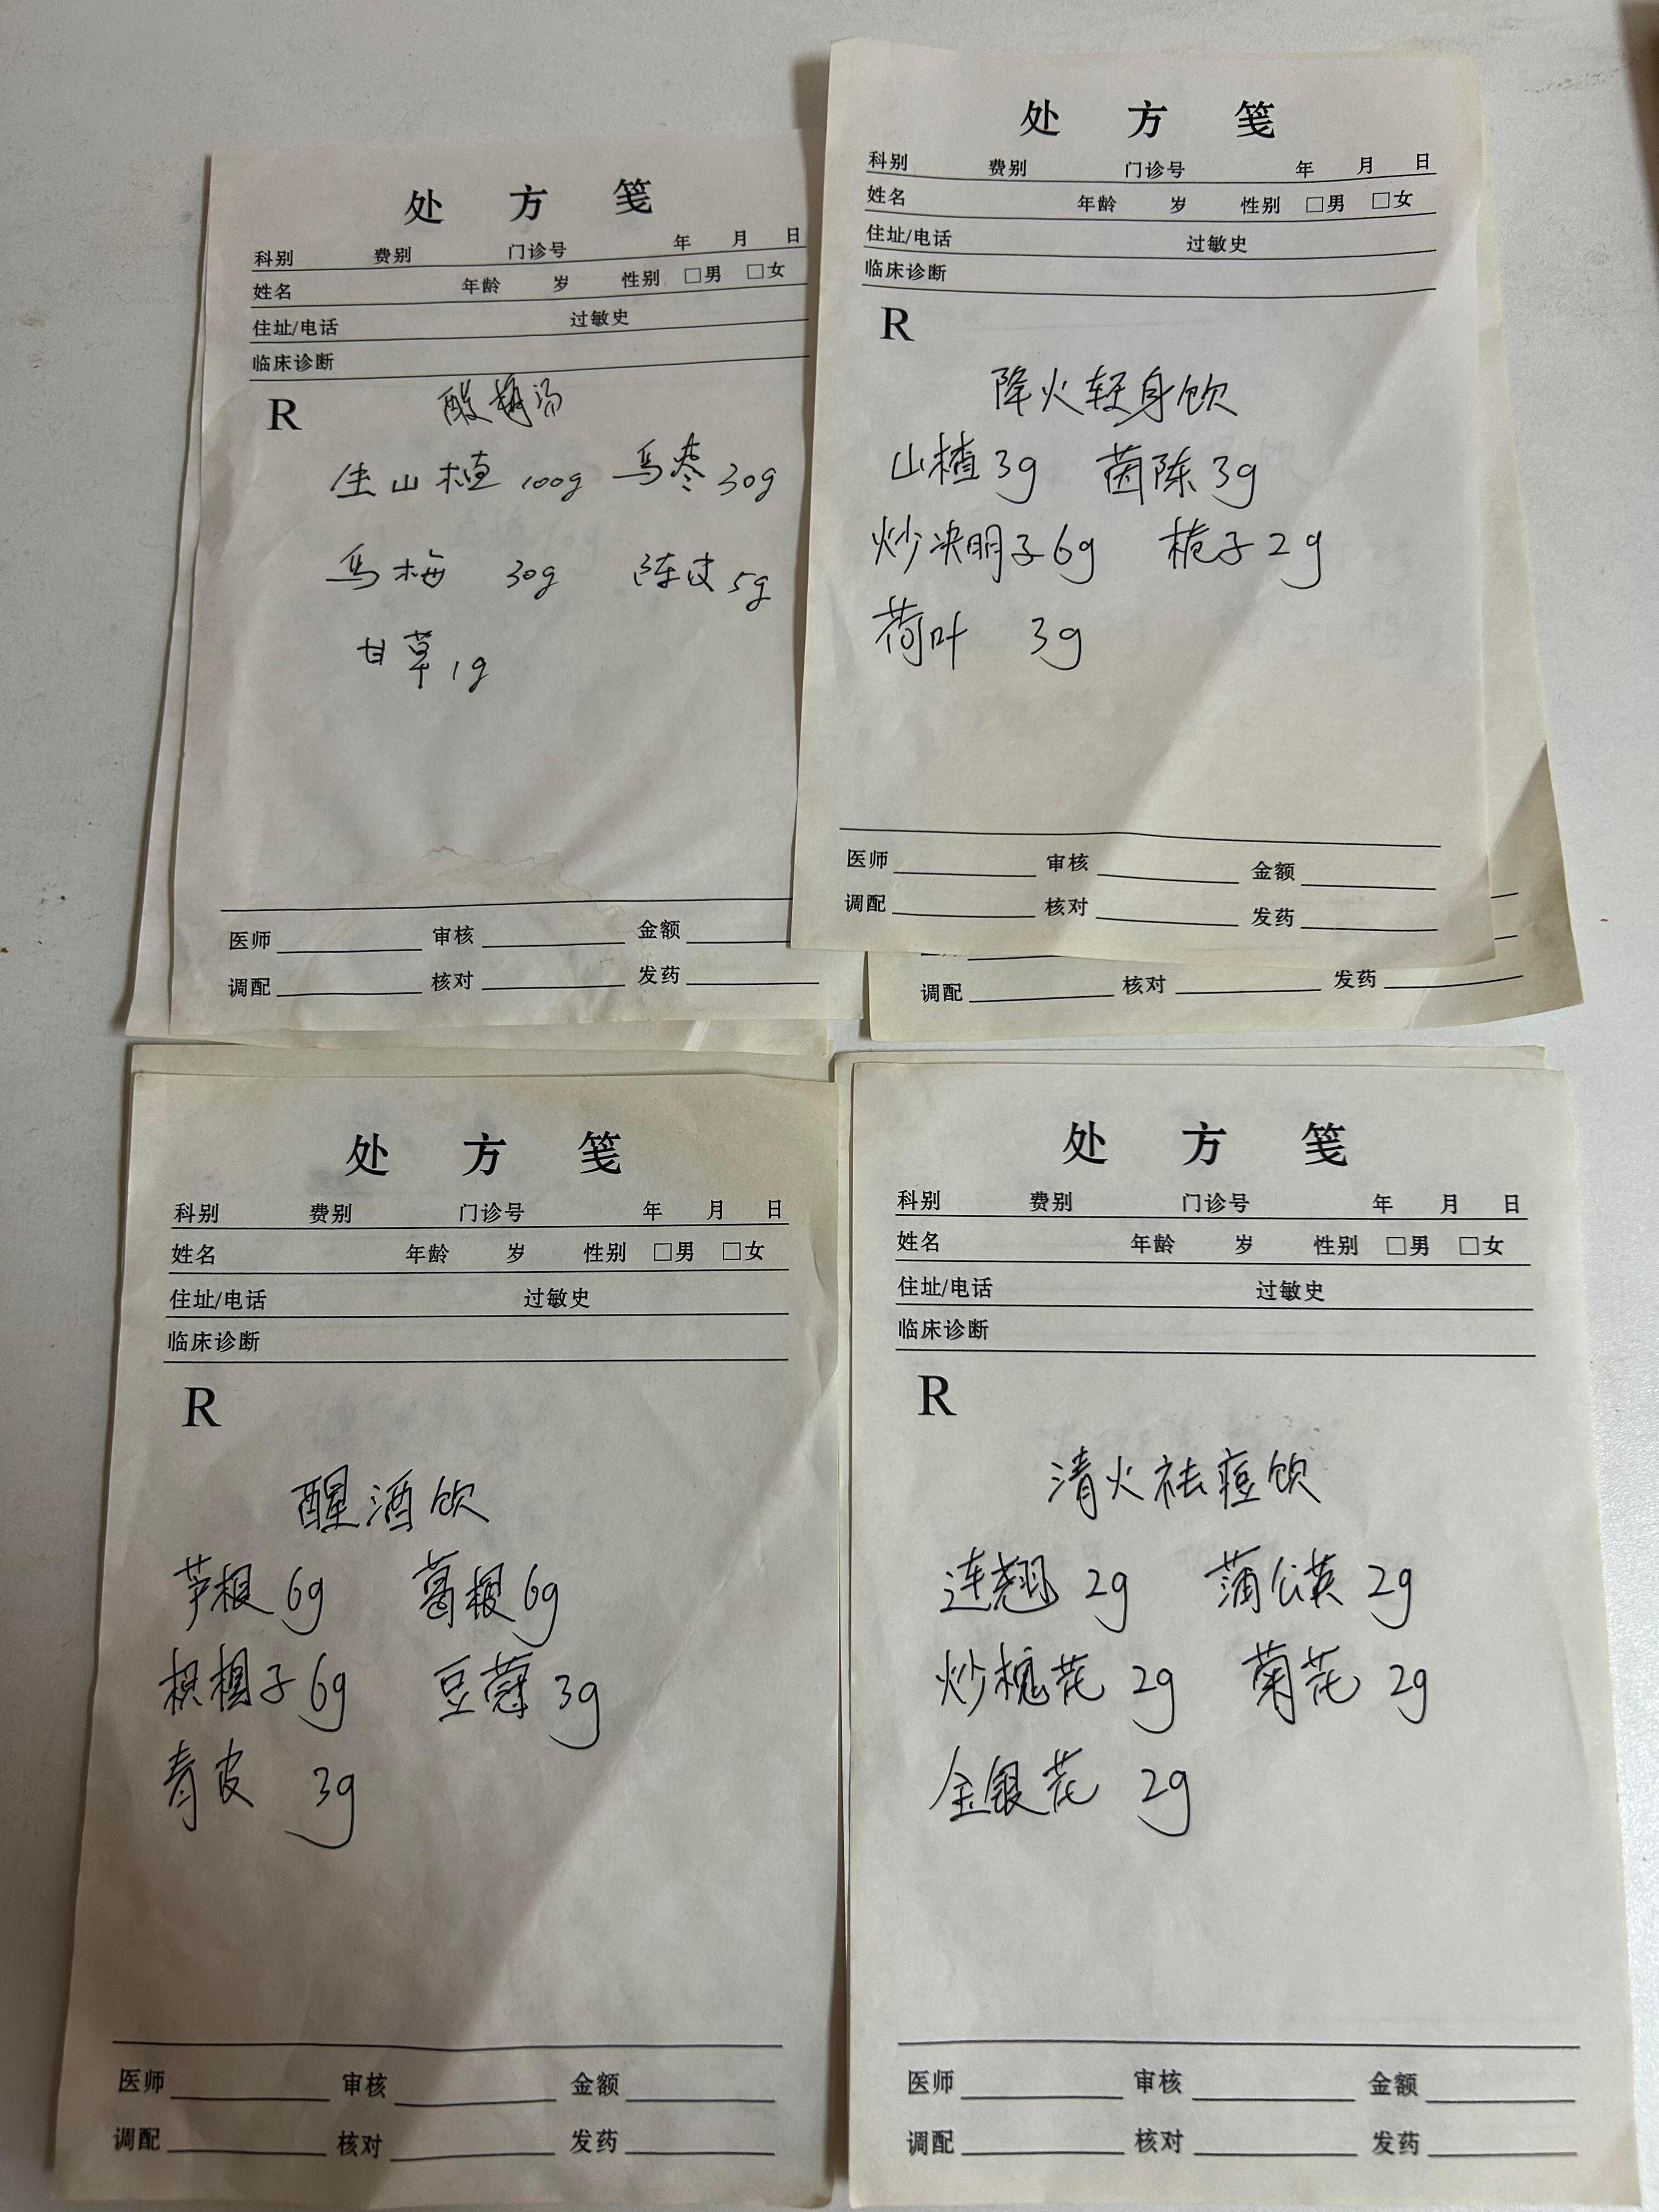 处 方 笺
科别 费别 门诊号 年 月 日
姓名 年龄 岁 性别 □男 □女
住址/电话 过敏史
临床诊断
R
酸梅汤
生山楂 100g 乌枣 30g
乌梅 30g 陈皮 5g
甘草 1g
医师 审核 金额
调配 核对 发药
处 方 笺
科别 费别 门诊号 年 月 日
姓名 年龄 岁 性别 □男 □女
住址/电话 过敏史
临床诊断
R
降火轻身饮
山楂 3g 茵陈 3g
炒决明子 6g 栀子 2g
荷叶 3g
医师 审核 金额
调配 核对 发药
调配 核对 发药
处 方 笺
科别 费别 门诊号 年 月 日
姓名 年龄 岁 性别 □男 □女
住址/电话 过敏史
临床诊断
R
醒酒饮
芦根 6g 葛根 6g
枳椇子 6g 豆蔻 3g
青皮 3g
医师 审核 金额
调配 核对 发药
处 方 笺
科别 费别 门诊号 年 月 日
姓名 年龄 岁 性别 □男 □女
住址/电话 过敏史
临床诊断
R
清火祛痘饮
连翘 2g 蒲公英 2g
炒槐花 2g 菊花 2g
金银花 2g
医师 审核 金额
调配 核对 发药